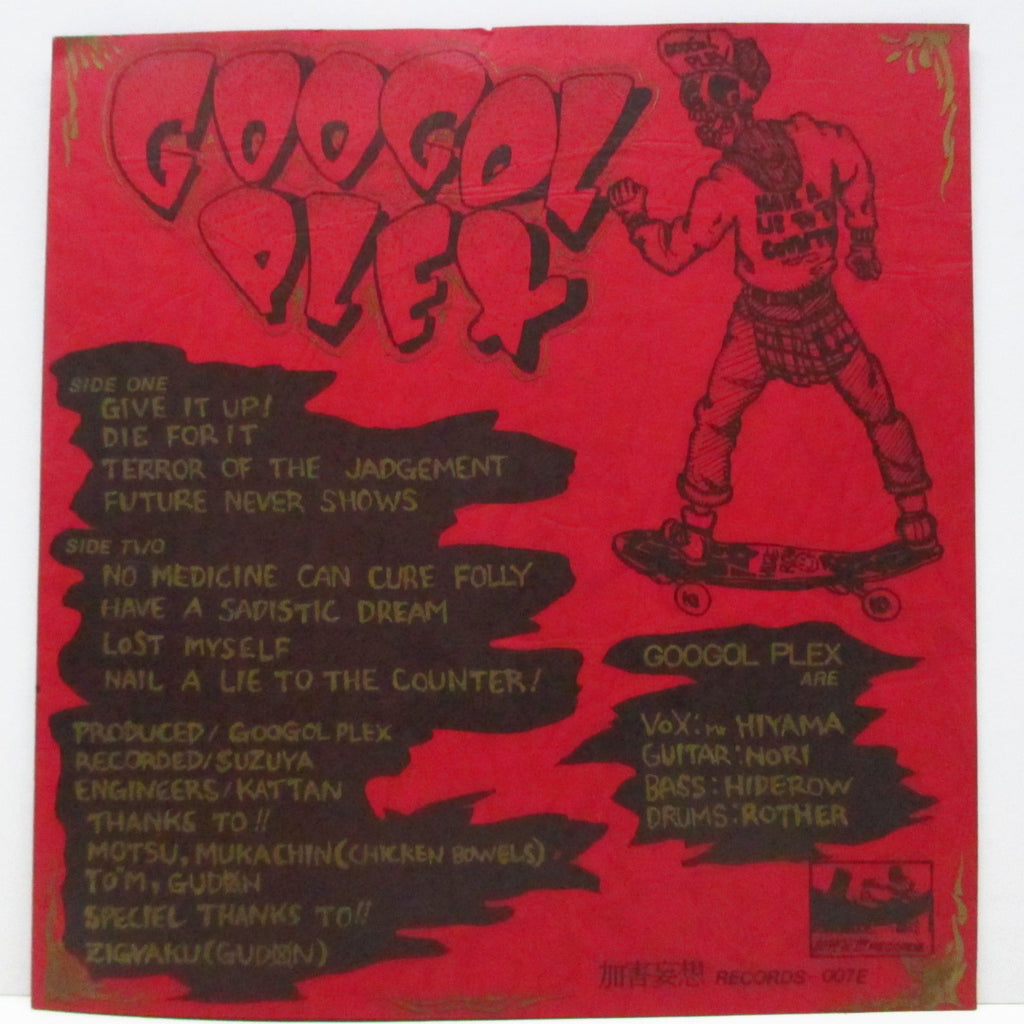 GOOGOL
PLEX
GOOGOL
PLEX
NAIL A
LIE TO T
COUNTER
SIDE ONE
GIVE IT UP!
DIE FOR IT
TERROR OF THE JADGEMENT
FUTURE NEVER SHOWS
SIDE TWO
NO MEDICINE CAN CURE FOLLY
HAVE A SADISTIC DREAM
LOST MYSELF
NAIL A LIE TO THE COUNTER!
PRODUCED/GOOGOL PLEX
RECORDED/SUZUYA
ENGINEERS/KATTAN
THANKS TO!!
MOTSU, MUKACHIN(CHICKEN BOWELS)
TO"M, GUDØN
SPECIEL THANKS TO!!
ZIGYAKU(GUDØN)
GOOGOL PLEX
ARE
VOX: Mr HIYAMA
GUITAR: NORI
BASS: HIDEROW
DRUMS: ROTHER
加害妄想 RECORDS 007E